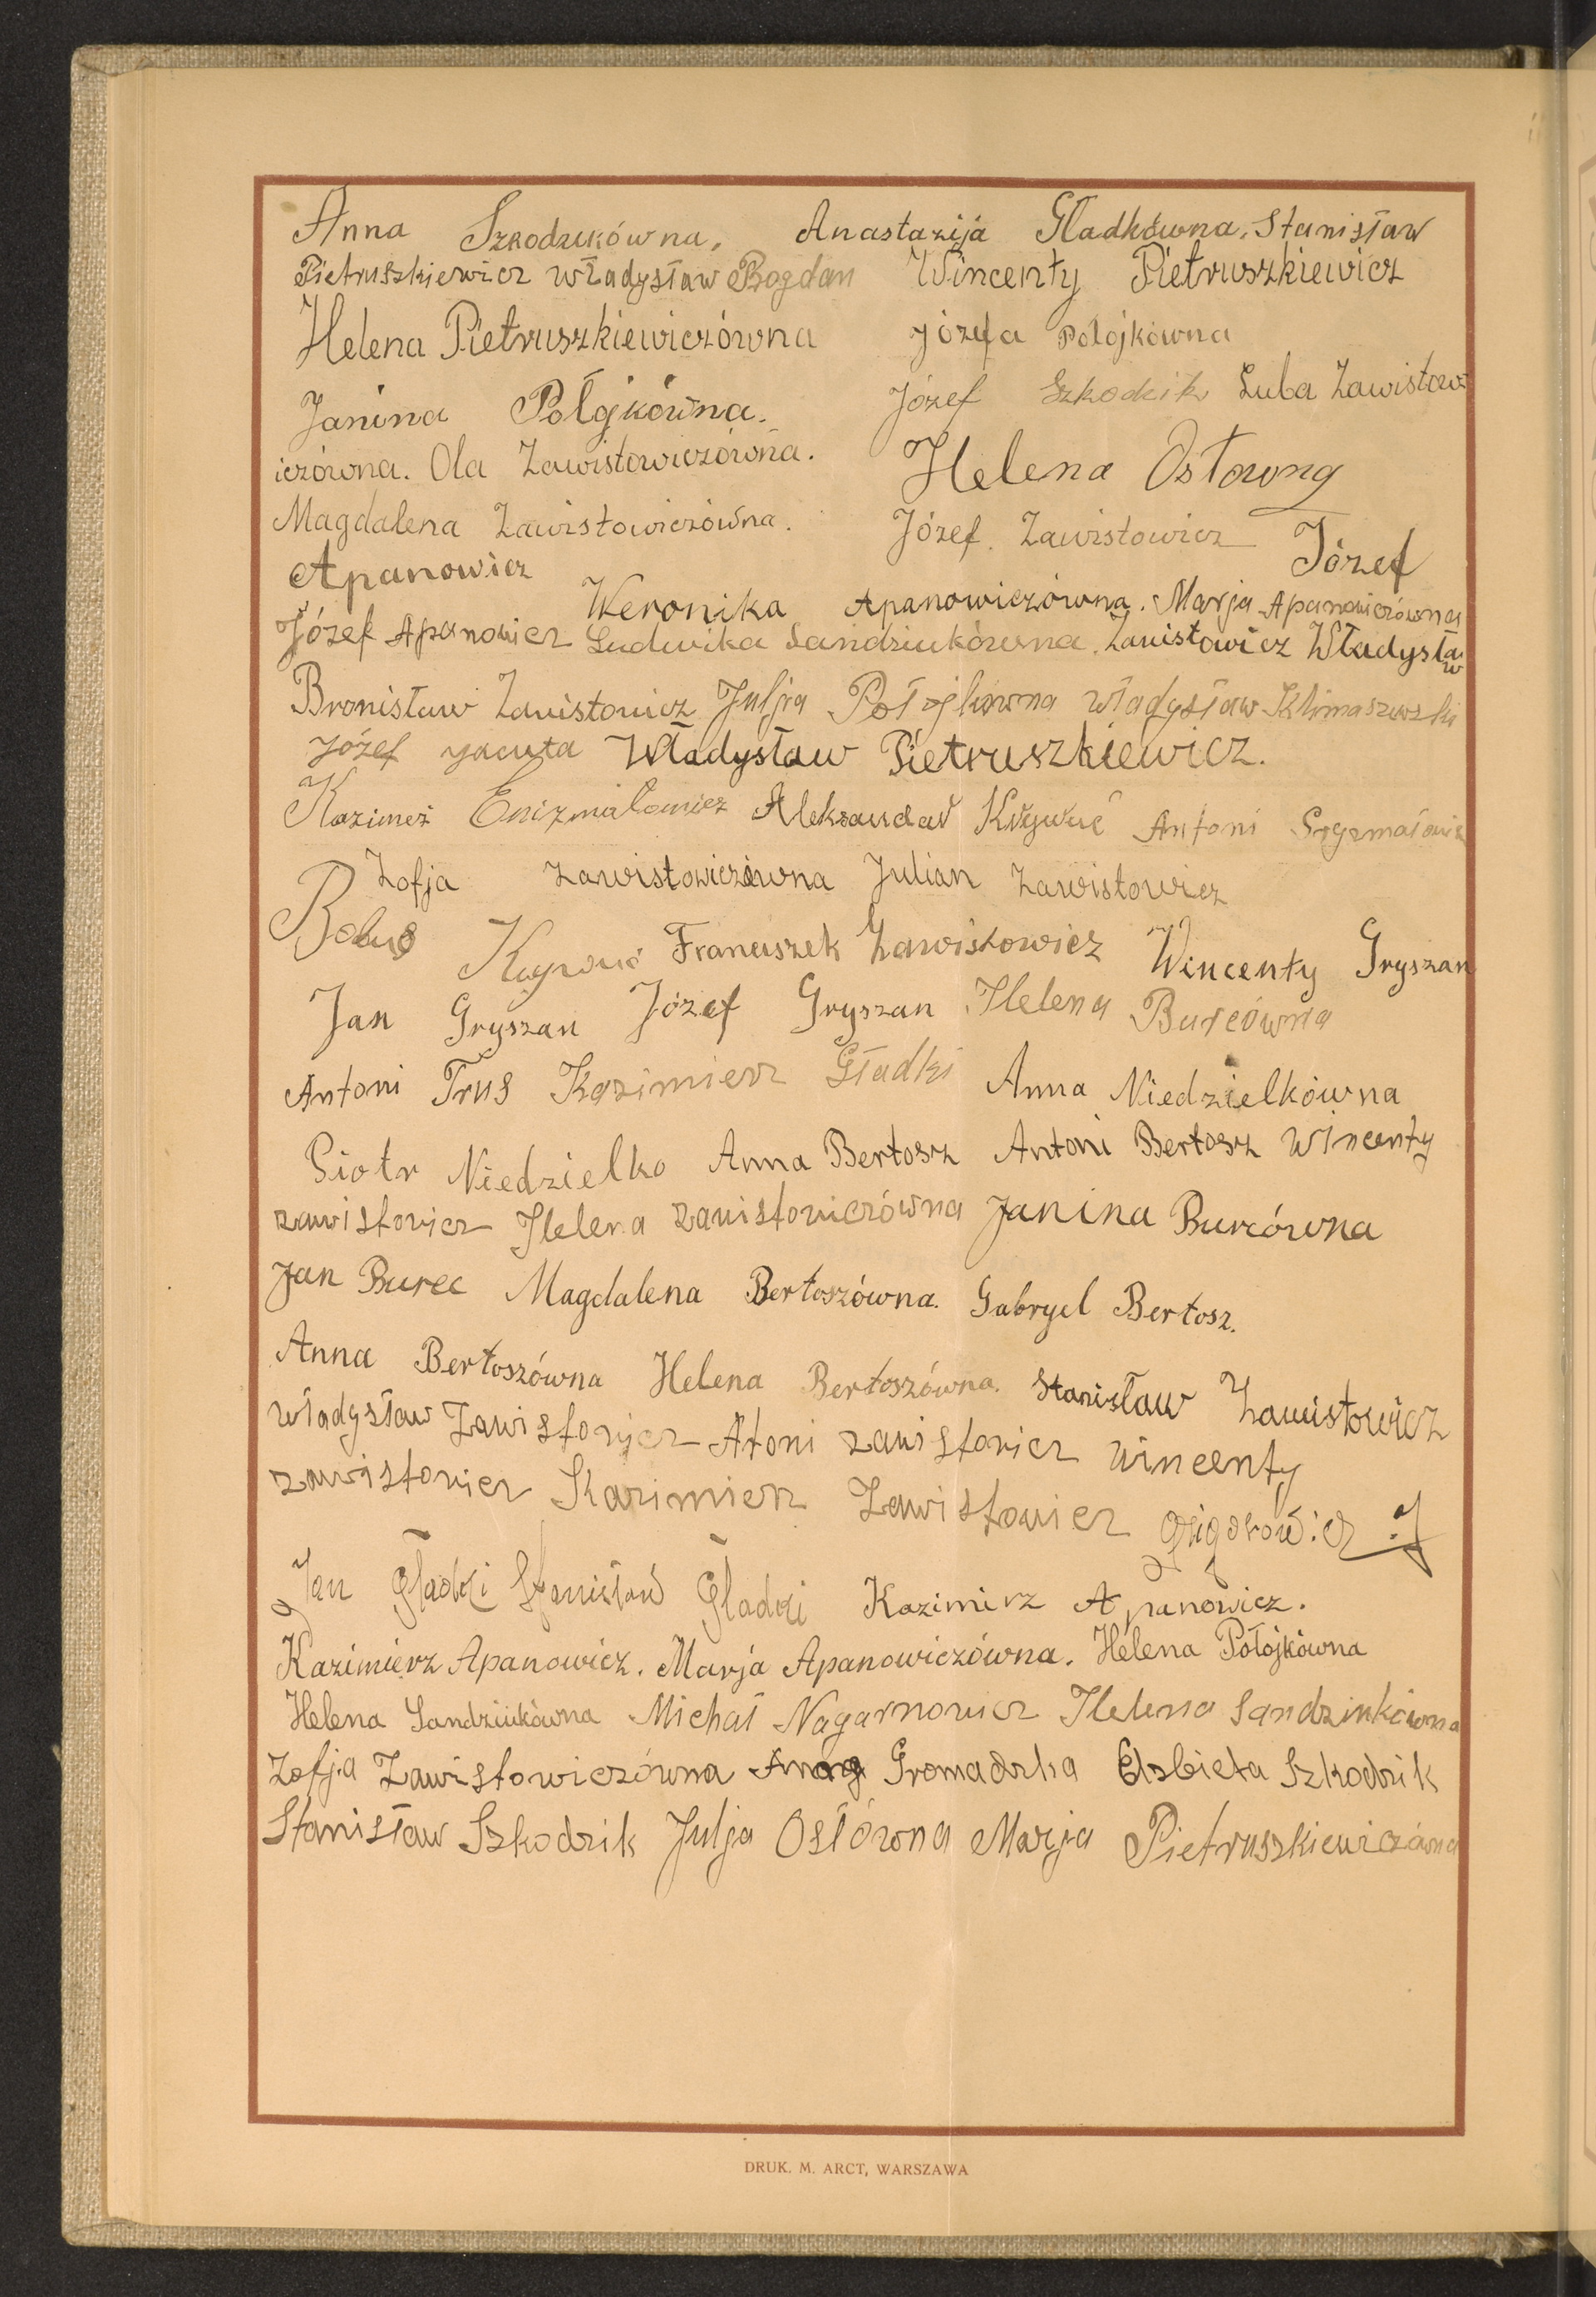 Anna Szkodzukówna, Anastazija Gładkówna, Stanisław
Pietruszkiewicz Władysław Bogdan Wincenty Pietruszkiewicz
Helena Pietruszkiewiczówna Józefa Połojkówna
Janina Połojkówna. Józef Szkodzik Luba Zawistow
iczówna. Ola Zawistowiczówna. Helena Osłowny
Magdalena Zawistowiczówna. Józef Zawistowicz Józef
Apanowicz
Weronika Apanowiczówna. Marja Apanowiczówna
Józef Apanowicz Ludwika Sandziukówna. Zawistowicz Władysław
Bronisław Zawistowicz Julja Połojkówna Władysław Klimaszewski
Józef Jacuta Władysław Pietruszkiewicz.
Kazimeż Aleksandar Antoni
Zofja Zawistowiczówna Julian Zawistowicz
Franciszek Zawistowicz Wincenty Gryszan
Jan Gryszan Józef Gryszan Helena Burcówna
Antoni Trus Kazimierz Gładki Anna Niedzielkówna
Piotr Niedzielko Anna Bertosz Antoni Bertosz Wincenty
zawistowicz Helena zawistowiczówna Janina Burcówna
Jan Burec Magdalena Bertoszówna. Gabryel Bertosz.
Anna Bertoszówna Helena Bertoszówna. Stanisław Zawistowicz
Władysław Zawistowicz Atoni zawistowicz Wincenty
zawistowicz Kazimierz Zawistowicz Grigorowicz J
Jan Gładki Stanisław Gładki Kazimirz Apanowicz.
Kazimierz Apanowicz. Marja Apanowiczówna. Helena Połojkówna
Helena Sandziukówna Michał Nagarnowicz Helena Sandziukówna
Zofja Zawistowiczówna Gromadzka Elzbieta Szkodzik
Stanisław Szkodzik Julja Osłówna Marja Pietruszkiewiczówna
DRUK. M. ARCT, WARSZAWA